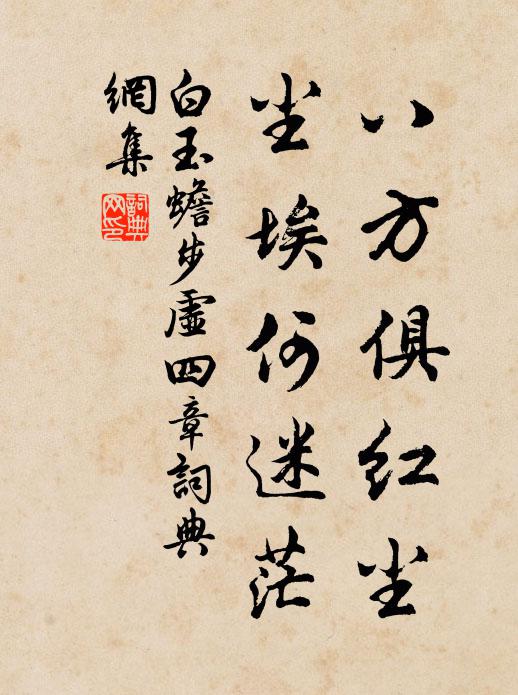 八方俱红尘
尘埃何迷茫
白玉蟾步虚四章詞典
網集
詞典
网印